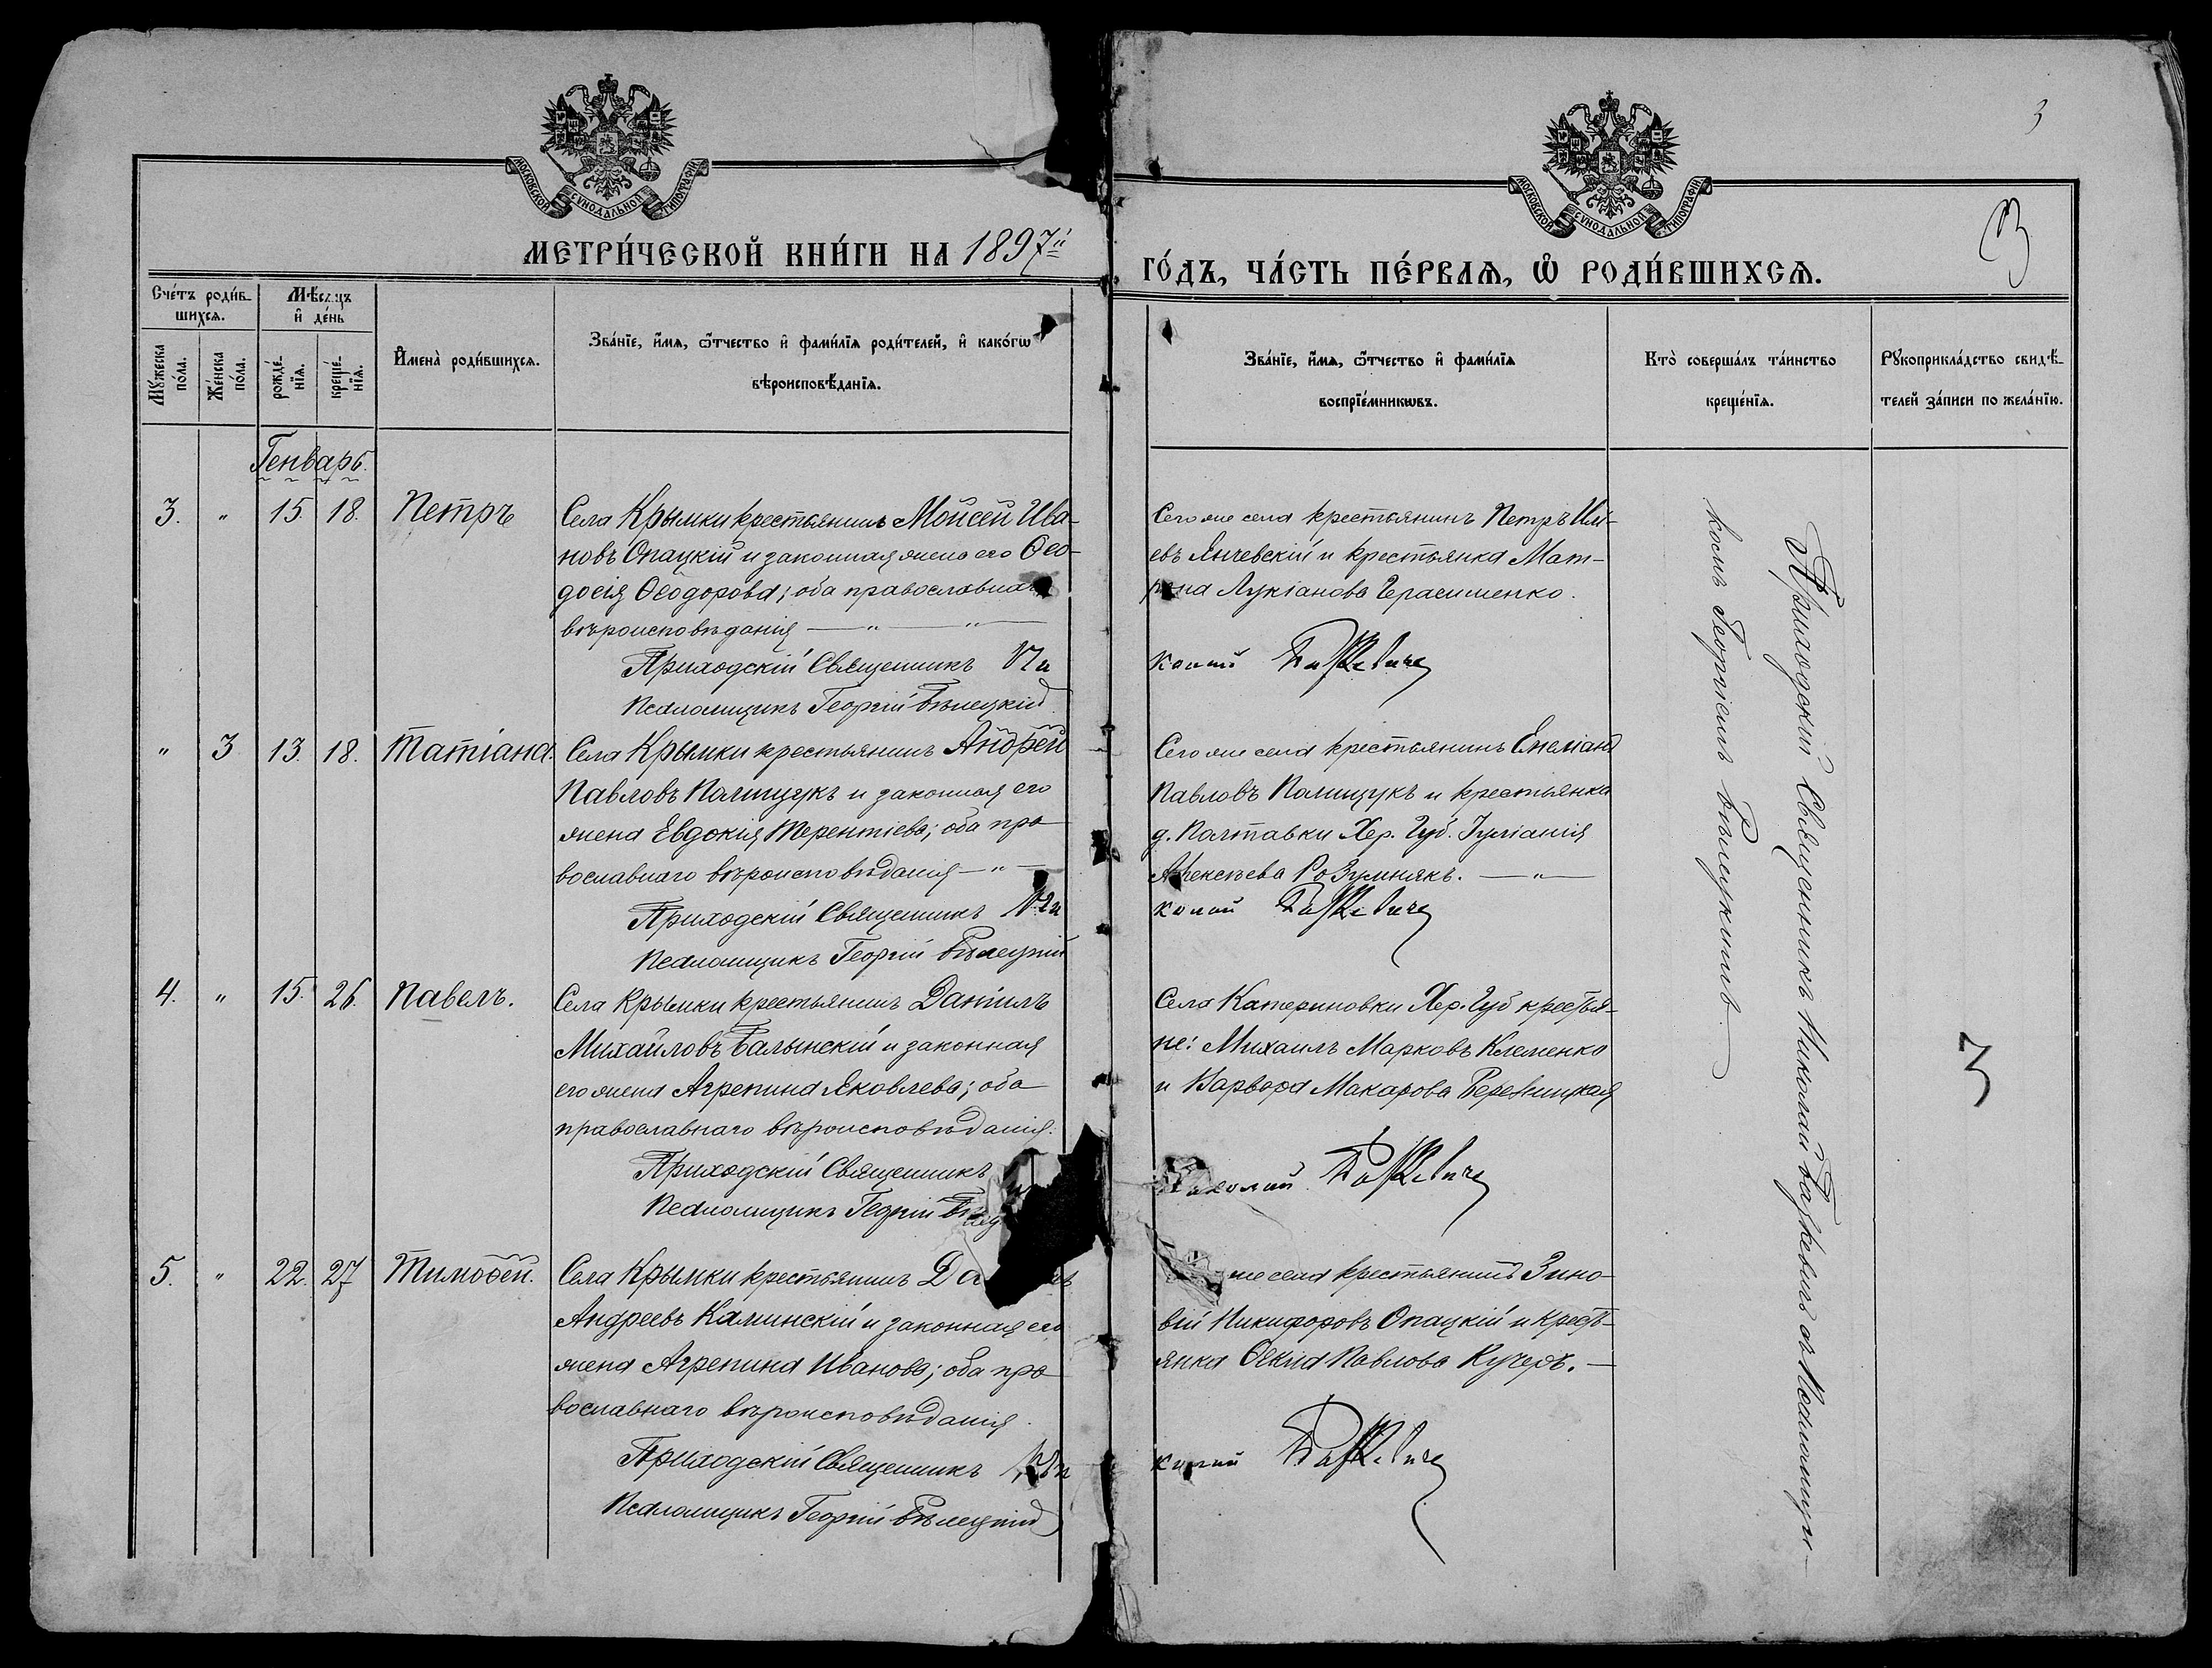 3
МОСКОВСКОЙ СУНОДАЛЬНОЙ ТИПОГРАФІИ
МОСКОВСКОЙ СУНОДАЛЬНОЙ ТИПОГРАФІИ
МЕТРИ́ЧЕСКОЙ КНИ́ГИ НА 1897й
ГО́ДЪ, ЧА́СТЬ ПЕ́РВАѦ, Ѡ РОДИ́ВШИХСѦ.
3
Сче́тъ роди́в-
шихсѧ.
Мꙋжеска по́ла.
Же́нска по́ла.
Мѣсѧцъ
и де́нь
рожде́-
нїѧ.
креще́-
нїѧ.
И҆мена̀ роди́вшихсѧ.
Зва́нїе, и҆́мѧ, ѻ҆́тчество и҆ фами́лїѧ роди́телей, и҆ како́гѡ
вѣроисповѣ́данїѧ.
Зва́нїе, и҆́мѧ, ѻ҆́тчество и҆ фами́лїѧ
воспрїе́мникѡвъ.
Кто̀ соверша́лъ та́инство
креще́нїѧ.
Рꙋкоприкла́дство свидѣ́-
телей за́писи по жела́нїю.
Генварь.
3. " 15. 18. Петръ
Села Крымки крестьянинъ Моисей Ива-
новъ Опацкій и законная жена его Ѳео-
досія Ѳеодорова; оба православнаго
вѣроисповѣданія — " — " —
Приходскій Священникъ Ни
Псаломщикъ Георгій Бѣлецкій
Сего же села крестьянинъ Петръ Иль-
евъ Янчевскій и крестьянка Мат-
рона Лукіанова Герасименко.
колай Пашкевичъ
" 3 13. 18. Татіана.
Села Крымки крестьянинъ Андрей
Павловъ Полищукъ и законная его
жена Евдокія Терентіева; оба пра-
вославнаго вѣроисповѣданія — " —
Приходскій Священникъ Ни
Псаломщикъ Георгій Бѣлецкій
Сего же села крестьянинъ Емеліанъ
Павловъ Полищукъ и крестьянка
д. Полтавки Хер. Губ. Іуліанія
Алексѣева Розумнякъ. — " —
колай
4. " 15. 26. Павелъ.
Села Крымки крестьянинъ Даніилъ
Михайловъ Балынскій и законная
его жена Агрепина Яковлева; оба
православнаго вѣроисповѣданія.
Приходскій Священникъ
Псаломщикъ Георгій
Села Катериновки Хер. Губ крестья-
не: Михаилъ Марковъ Клеменко
и Варвара Макарова
колай
5. " 22. 27 Тимоѳей.
Села Крымки крестьянинъ
Андреевъ Каминскій и законная его
жена Агрепина Иванова; оба пра-
вославнаго вѣроисповѣданія.
Приходскій Священникъ Ни
Псаломщикъ Георгій Бѣлецкій
же села крестьянинъ Зино-
вій Никифоровъ Опацкій и крестъ-
янка Павлова Кучеръ. —
колай
Приходскій Священникъ Николай съ Псаломщи-
комъ Георгіемъ Бѣлецкимъ.
3